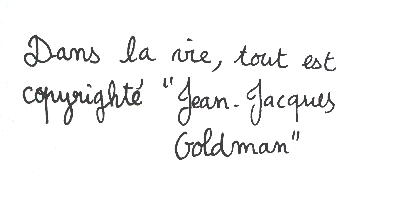 Dans la vie, tout est
copyrighté "Jean-Jacques
Goldman"